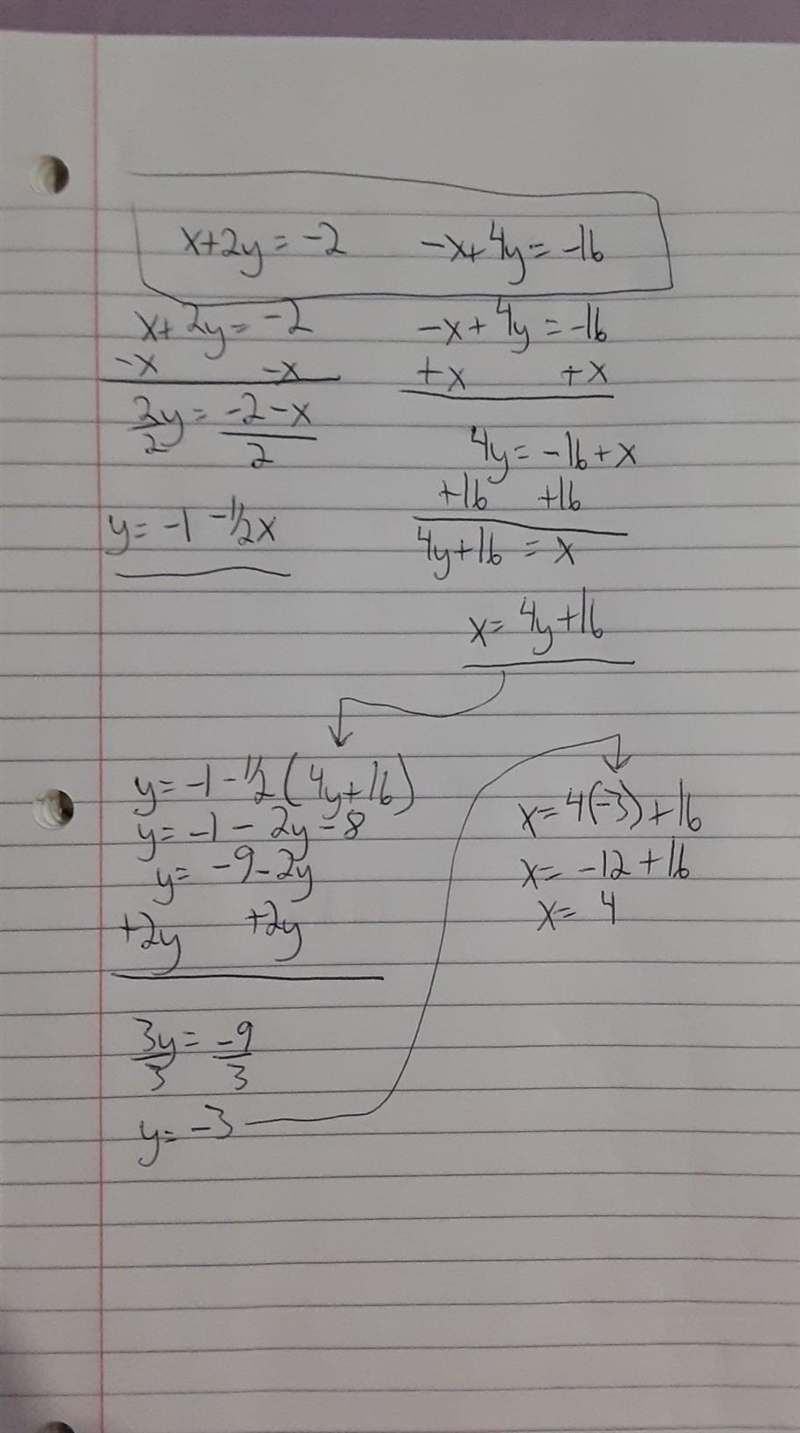 x+2y=-2    -x+4y=-16
x+2y=-2
-x    -x
2y/2 = (-2-x)/2
y=-1 -1/2x
-x+4y=-16
+x    +x
4y=-16+x
+16    +16
4y+16 = x
x= 4y+16
y=-1-1/2(4y+16)
y=-1-2y-8
y= -9-2y
+2y    +2y
3y/3 = -9/3
y= -3
x=4(-3)+16
x= -12+16
x= 4